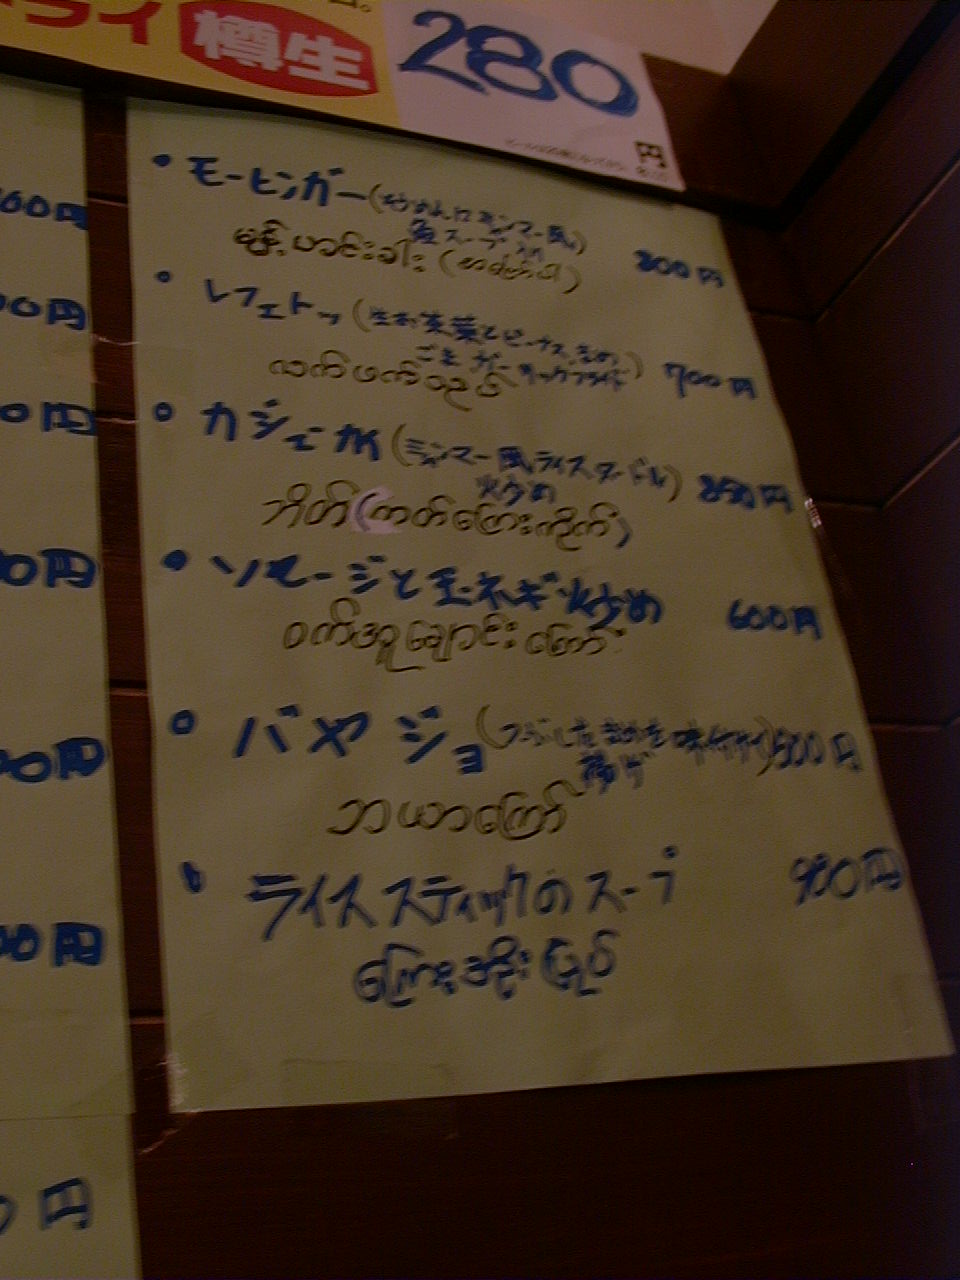 ライ 樽生 280
円
・モーヒンガー(
魚スープ入)
800円
မုန့်ဟင်းခါး
・レフェトッ(生お茶葉とピーナス,まめ
ごま ガーリックフライド) 700円
လက်ဖက်
・カジェカイ(ミャンマー風ライスヌードル
炒め) 850円
ကတ်ကြေးကိုက်
・ソセージと玉ネギ炒め 600円
ဝက်အူချောင်းကြော်
・バヤジョ(つぶしたまめを味付け
揚げ) 500円
ဘယာကြော်
・ライススティックのスープ 900円
ကြေးအိုးပြုပ်
00円
00円
0円
00円
00円
00円
0円